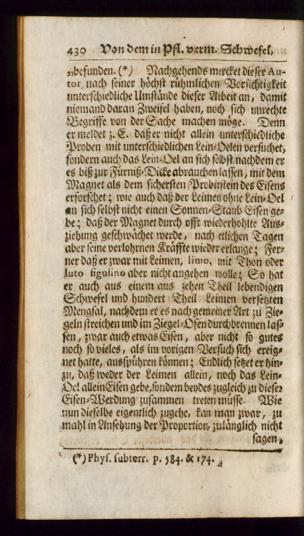 430 Von dem in Pfl. verm. Schwefel,
„befunden. (*) Nachgehends mercket dieser Au-
tor nach seiner höchst rühmlichen Vorsichtigkeit
unterschiedliche Umstände dieser Arbeit an, damit
niemand daran Zweifel haben, noch sich unrechte
Begriffe von der Sache machen möge. Denn
er meldet z. E. daß er nicht allein unterschiedliche
Proben mit unterschiedlichen Lein-Oelen versuchet,
sondern auch das Lein-Oel an sich selbst nachdem er
es biß zur Fürniß-Dicke abrauchen lassen, mit dem
Magnet als dem sichersten Probirstein des Eisens
erforschet; wie auch daß der Leimen ohne Lein-Oel
an sich selbst nicht einen Sonnen-Staub Eisen ge-
be; daß der Magnet durch offt wiederhohlte Aus-
ziehung geschwächet werde, nach etlichen Tagen
aber seine verlohrnen Kräffte wieder erlange; Fer-
ner daß er zwar mit Leimen, limo, mit Thon oder
luto figulino aber nicht angehen wolle; So hat
er auch aus einem aus zehen Theil lebendigen
Schwefel und hundert Theil Leimen versetzten
Mengsal, nachdem er es nach gemeiner Art zu Zie-
geln streichen und im Ziegel-Ofen durchbrennen las-
sen, zwar auch etwas Eisen, aber nicht so gutes
noch so vieles, als im vorigen Versuch sich ereig-
net hatte, ausspühren können; Endlich setzet er hin-
zu, daß weder der Leimen allein, noch das Lein-
Oel allein Eisen gebe, sondern beydes zugleich zu dieser
Eisen-Werdung zusammen treten müsse. Wie
nun dieselbe eigentlich zugehe, kan man zwar, zu
mahl in Ansehung der Proportion, zulänglich nicht
sagen,
(*) Phys. subterr. p. 584. & 174.